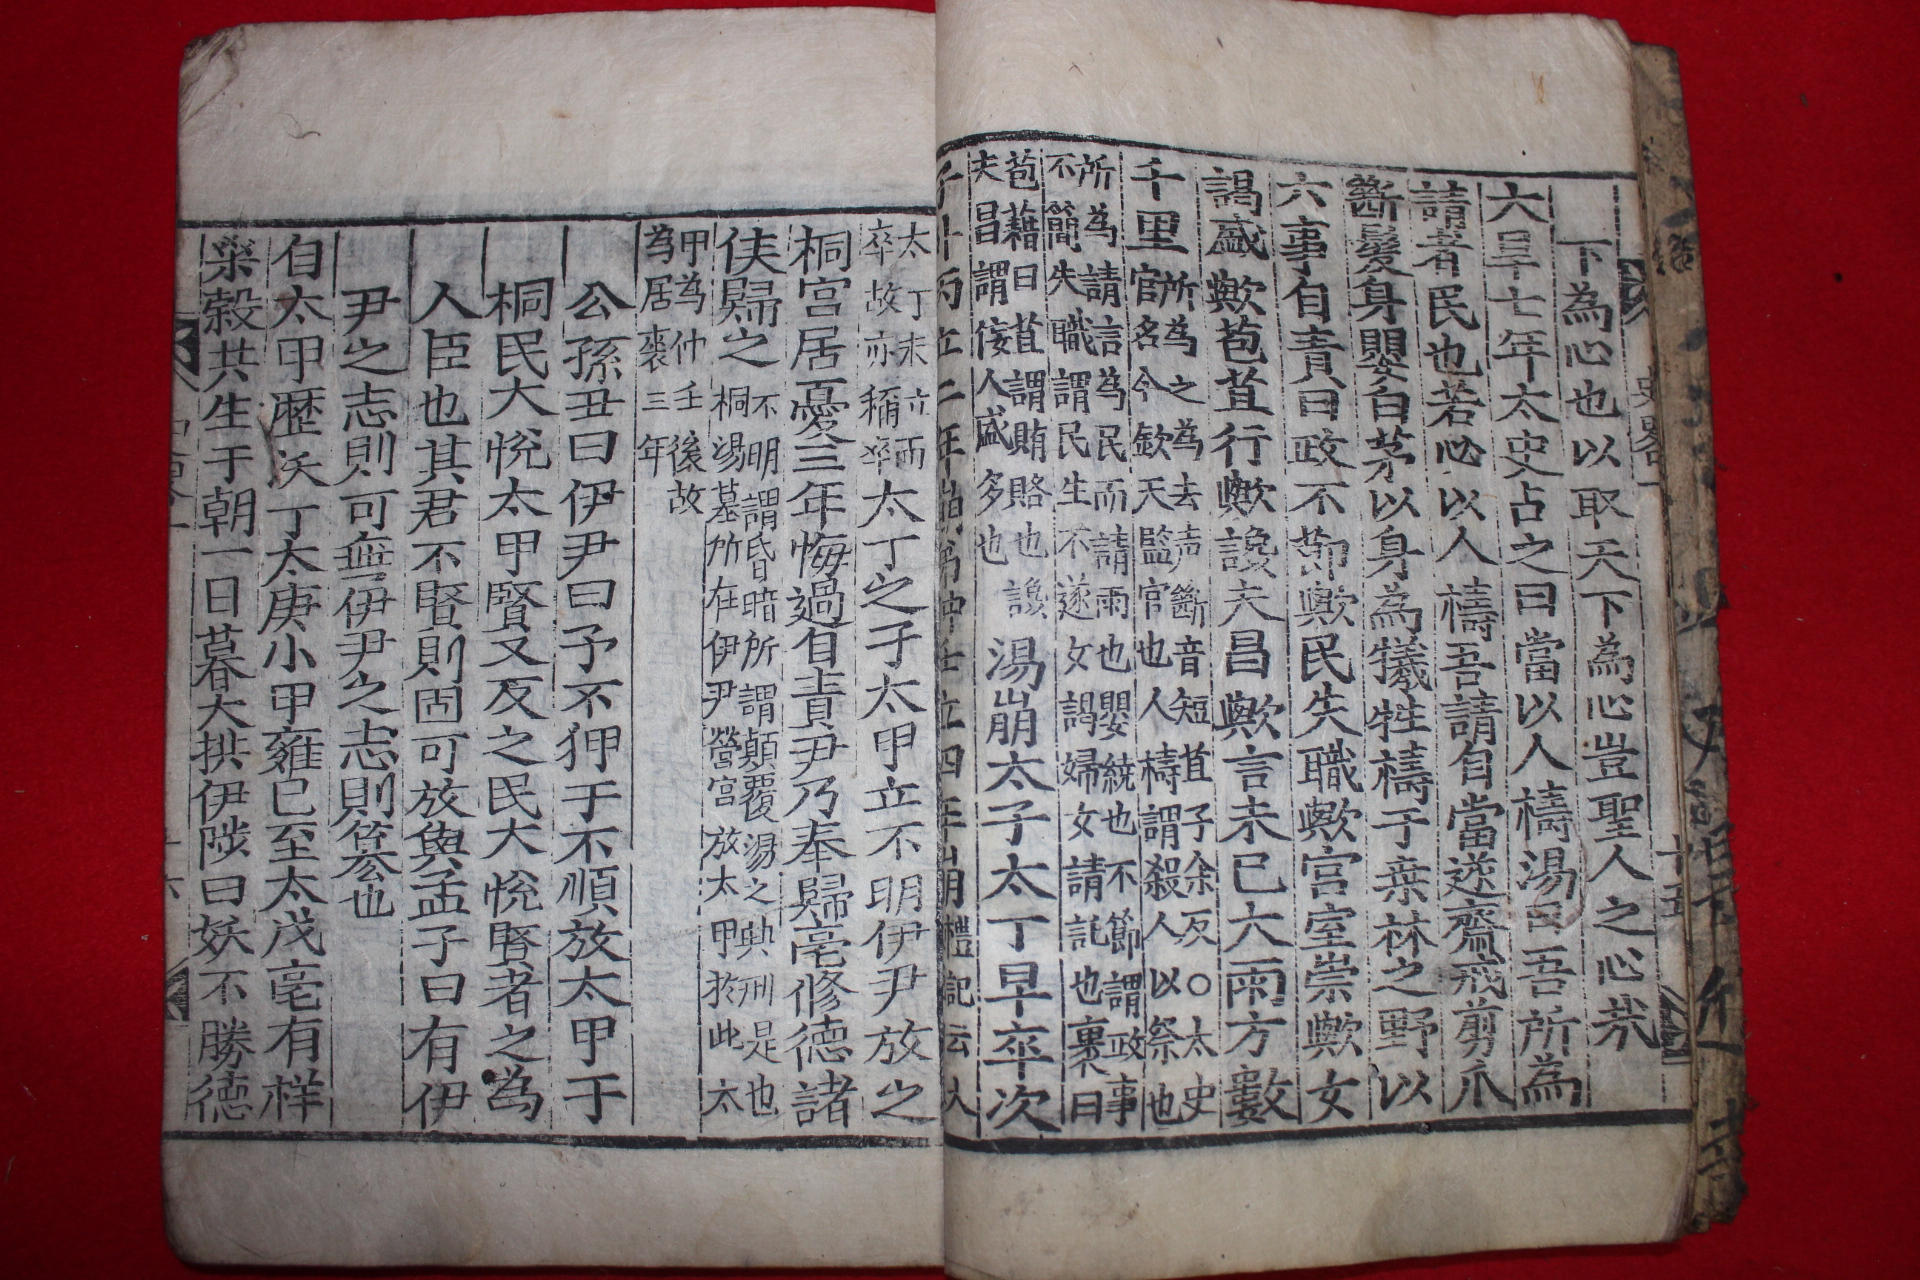 下為心也以取天下為心豈聖人之心哉
六旱七年太史占之曰當以人禱湯曰吾所為
請者民也若必以人禱吾請自當遂齋戒剪爪
斷髮身嬰白茅以身為犧牲禱于桒林之野以
六事自責曰政不節歟民失職歟宮室崇歟女
謁盛歟苞苴行歟讒夫昌歟言未已六雨方數
千里
所為之為去声斷音短苴子余反○太史
官名今欽天監官也人禱謂殺人以祭也
所為請言為民而請雨也嬰繞也不節謂政事
不簡失職謂民生不遂女謁婦女請託也裹曰
苞藉曰苴謂賄賂也讒
夫昌謂侫人盛多也
湯崩太子太丁早卒次
子外丙立二年崩㐌仲壬立四年崩禮記云人
太丁未立而
卒故亦稱卒
太丁之子太甲立不明伊尹放之
桐宮居憂三年悔過自責尹乃奉歸亳修德諸
侯歸之
不明謂昏暗所謂顛覆湯之典刑是也
桐湯墓所在伊尹營宮放太甲於此太
甲為仲壬後故
為居喪三年
公孫丑曰伊尹曰予不狎于不順放太甲于
桐民大悅太甲賢又反之民大悅賢者之為
人臣也其君不賢則固可放與孟子曰有伊
尹之志則可無伊尹之志則簒也
自太甲歷沃丁太庚小甲雍已至太戊亳有祥
桒穀共生于朝一日暮大拱伊陟曰妖不勝德